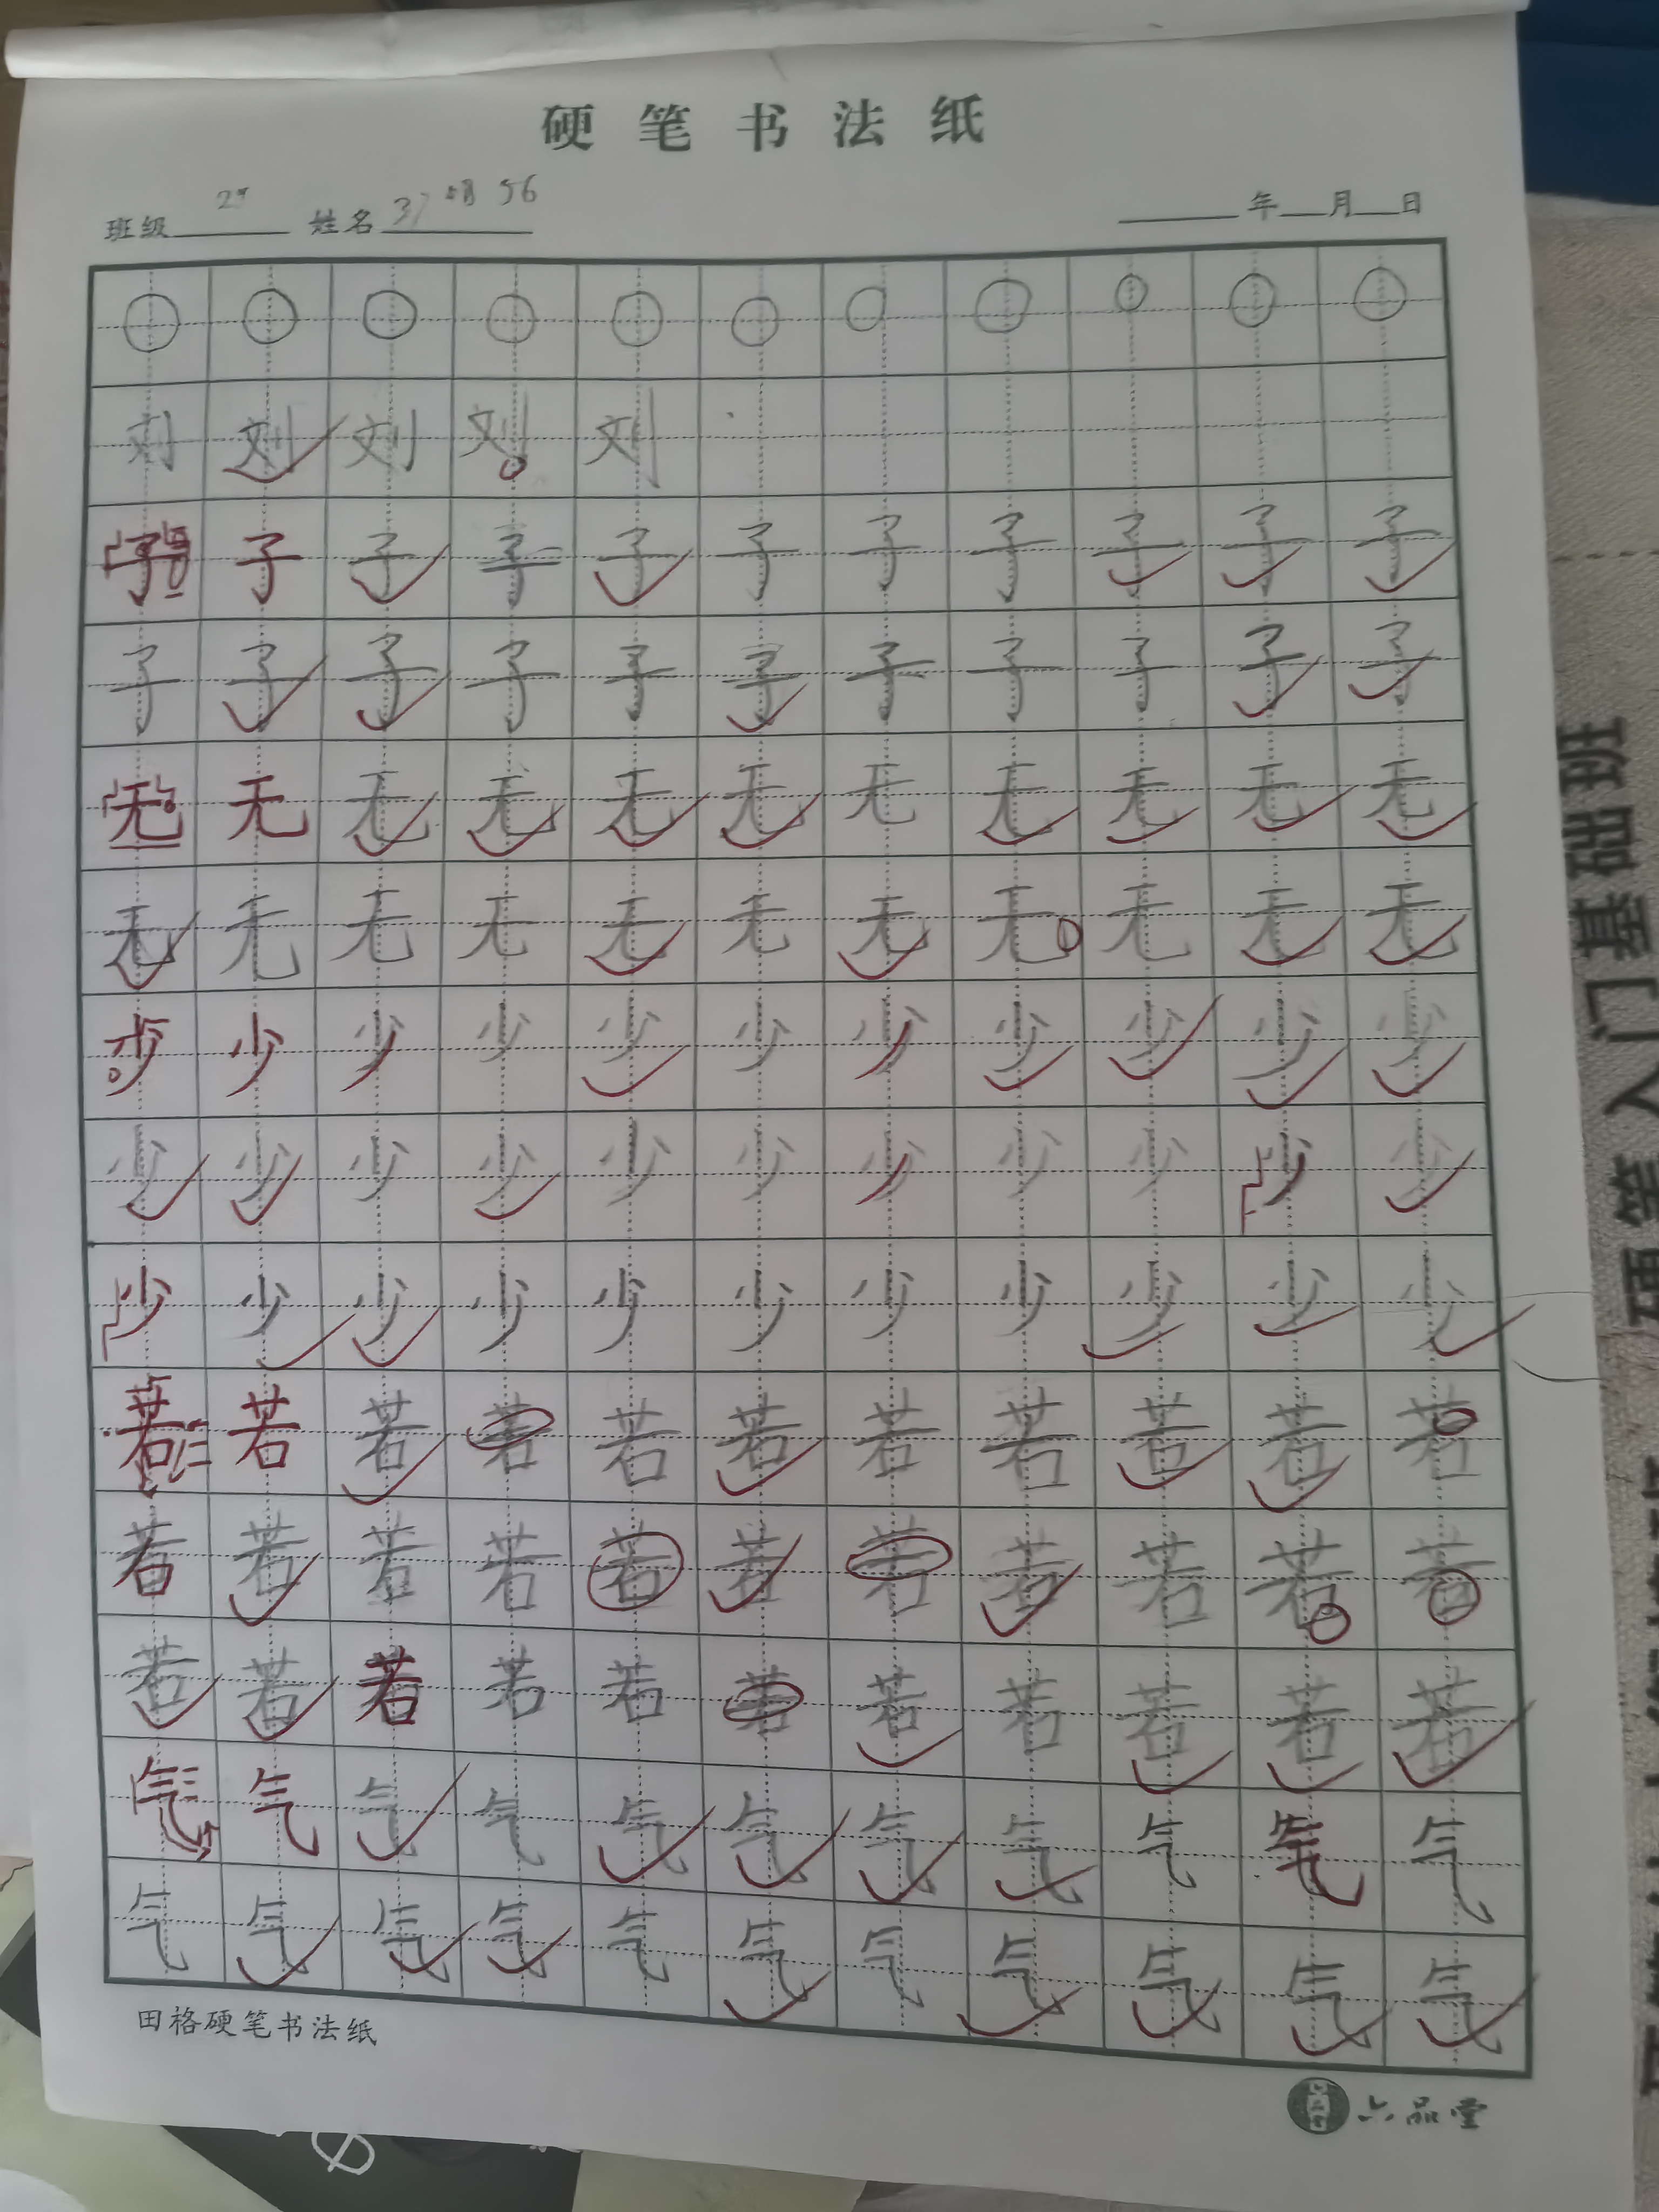 硬笔书法纸
班级 姓名 年 月 日
○ ○ ○ ○ ○ ○ ○ ○ ○ ○ ○
刘 刘 刘 刘 刘
子 子 子 子 子 子 子 子 子 子 子
子 子 子 子 子 子 子 子 子 子 子
无 无 无 无 无 无 无 无 无 无 无
无 无 无 无 无 无 无 无 无 无 无
少 少 少 少 少 少 少 少 少 少 少
少 少 少 少 少 少 少 少 少 少 少
少 少 少 少 少 少 少 少 少 少 少
若 若 若 若 若 若 若 若 若 若 若
若 若 若 若 若 若 若 若 若 若 若
若 若 若 若 若 若 若 若 若 若 若
气 气 气 气 气 气 气 气 气 气 气
气 气 气 气 气 气 气 气 气 气 气
田格硬笔书法纸
六品堂
硬笔入门基础班